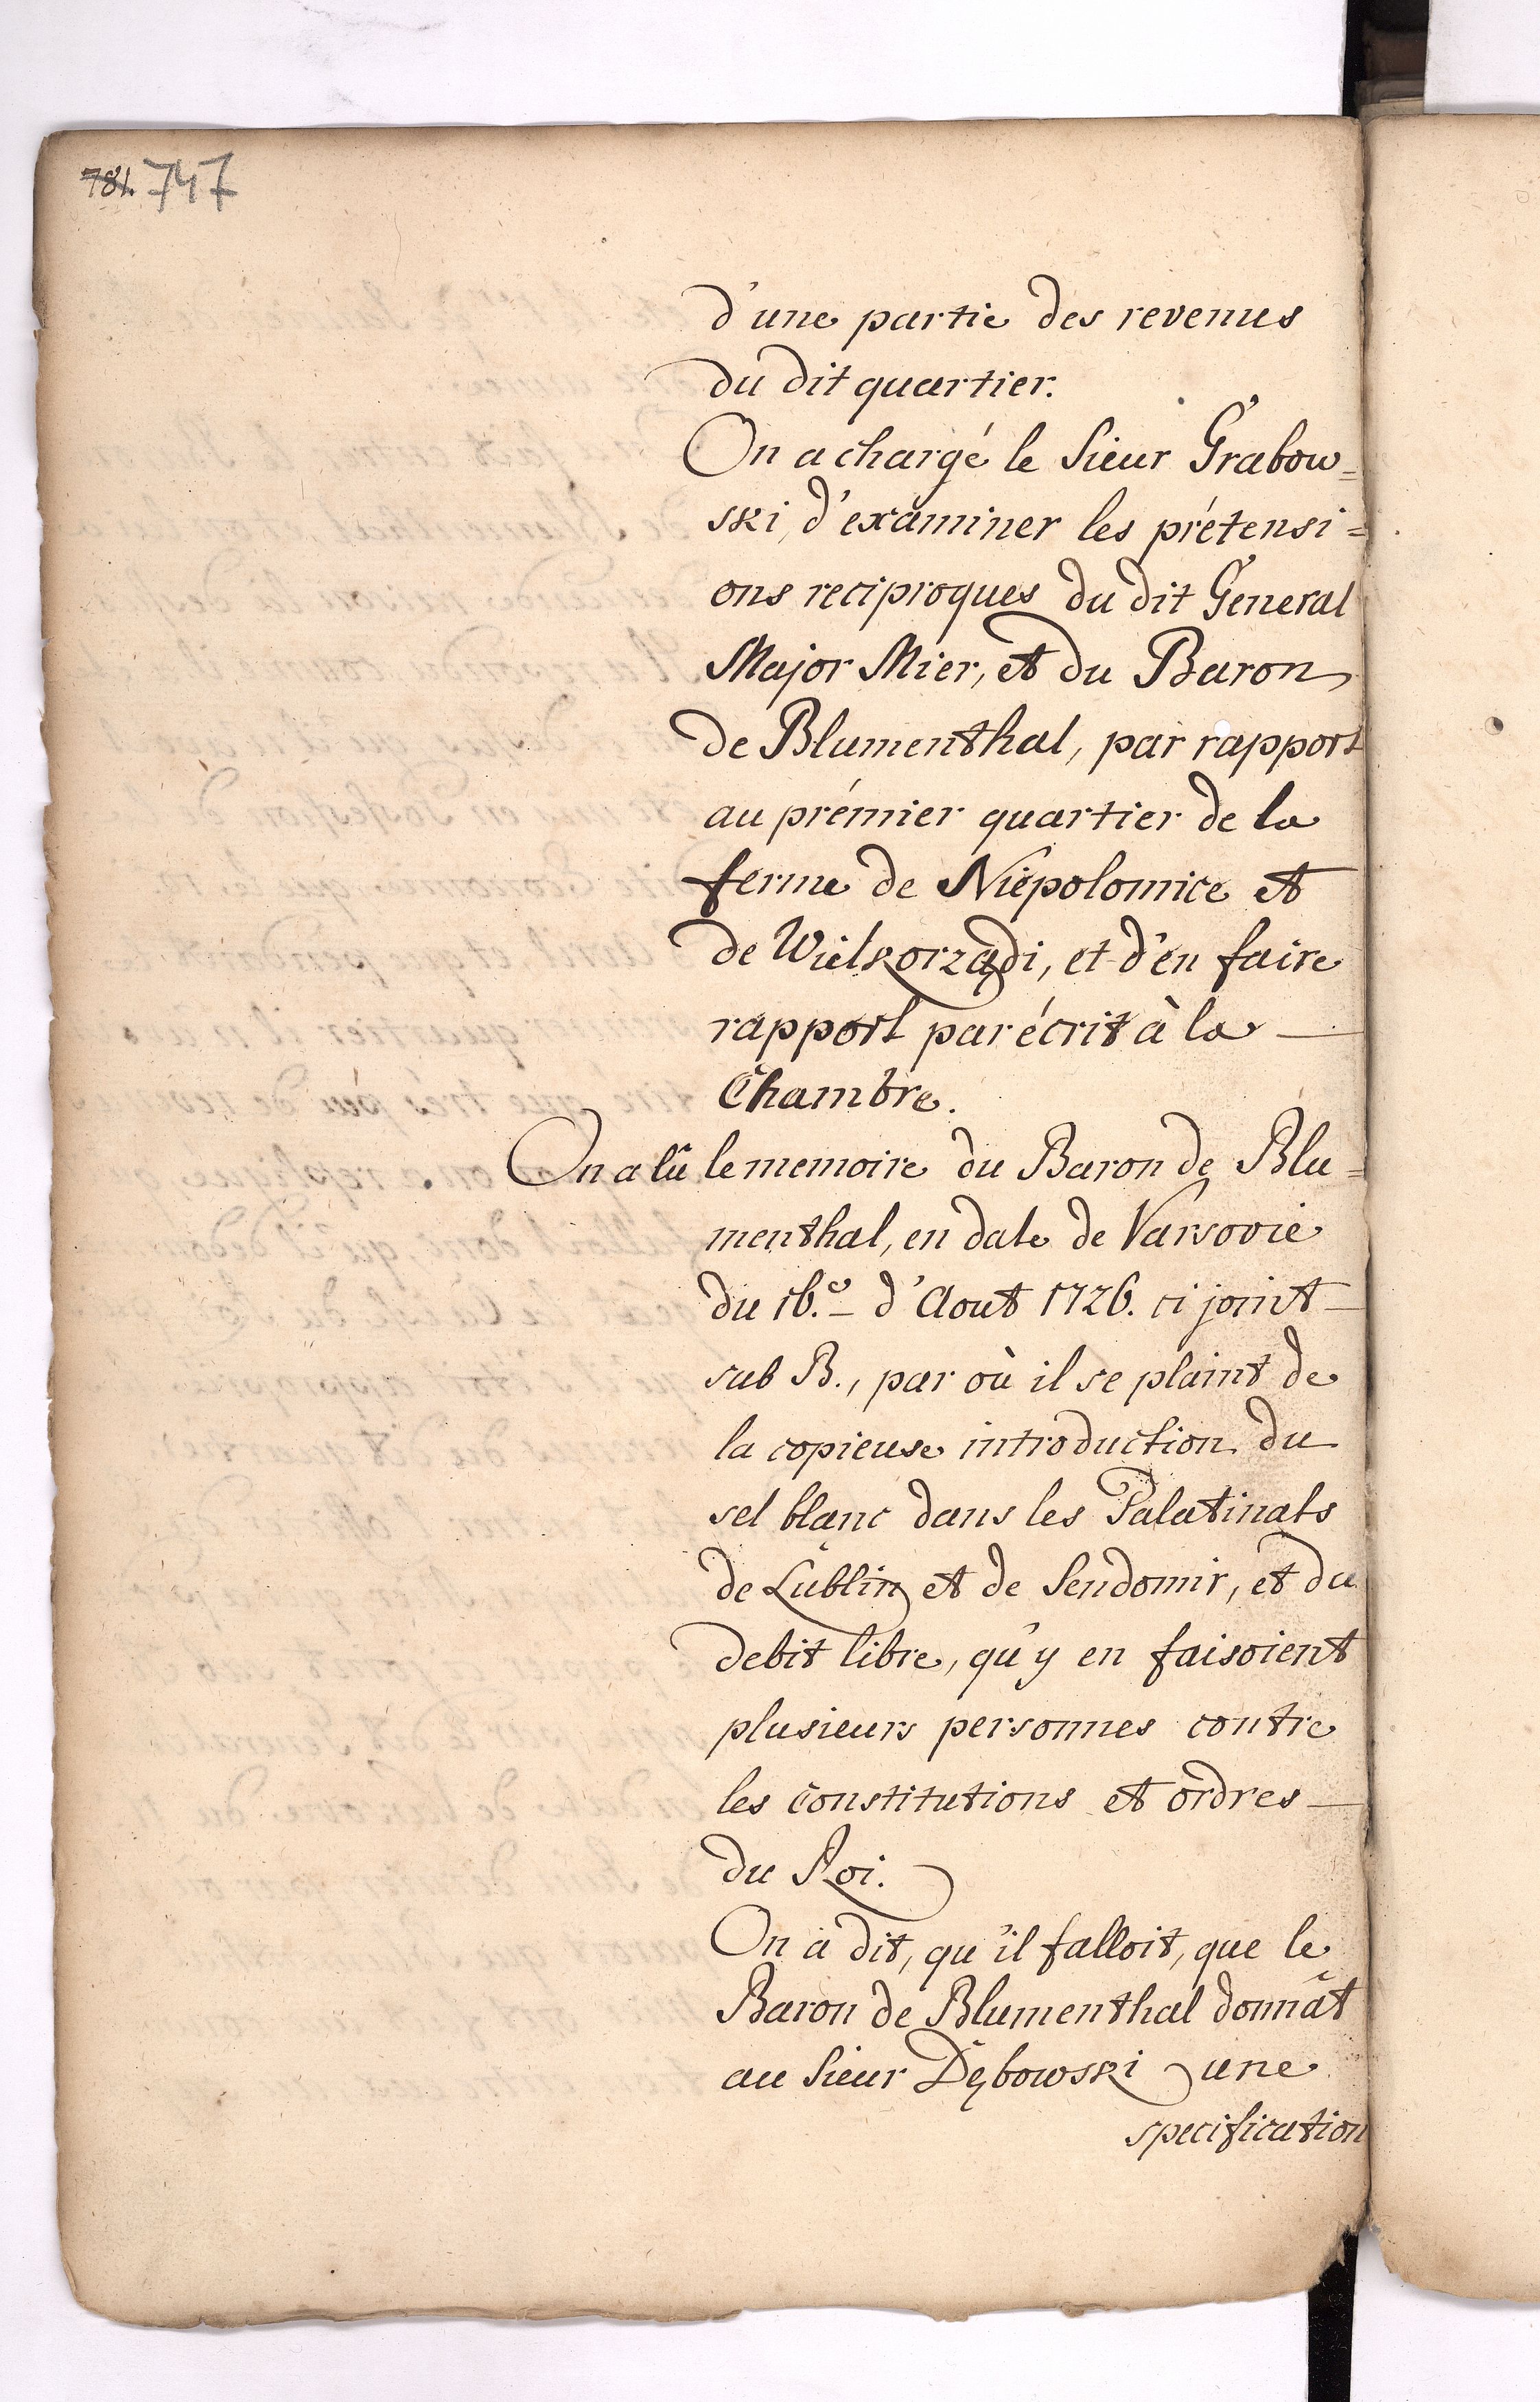 781. 747
d'une partie des revenus
du dit quartier.
On a chargé le Sieur Grabow=
ski, d'examiner les prétensi=
ons reciproques du dit General
Major Mier, et du Baron
de Blumenthal, par rapport
au prémier quartier de la
ferme de Niepolomice et
de Wielkorządi, et d'en faire
rapport par écrit à la
Chambre.
On a lû le memoire du Baron de Blu=
menthal, en date de Varsovie
du 16.e d'Aout 1726. ci joint
sub B., par où il se plaint de
la copieuse introduction du
sel blanc dans les Palatinats
de Lublin et de Sendomir, et du
debit libre, qu'y en faisoient
plusieurs personnes contre
les constitutions et ordres
du Roi.
On a dit, qu'il falloit, que le
Baron de Blumenthal donnât
au Sieur Dębowski une
specification